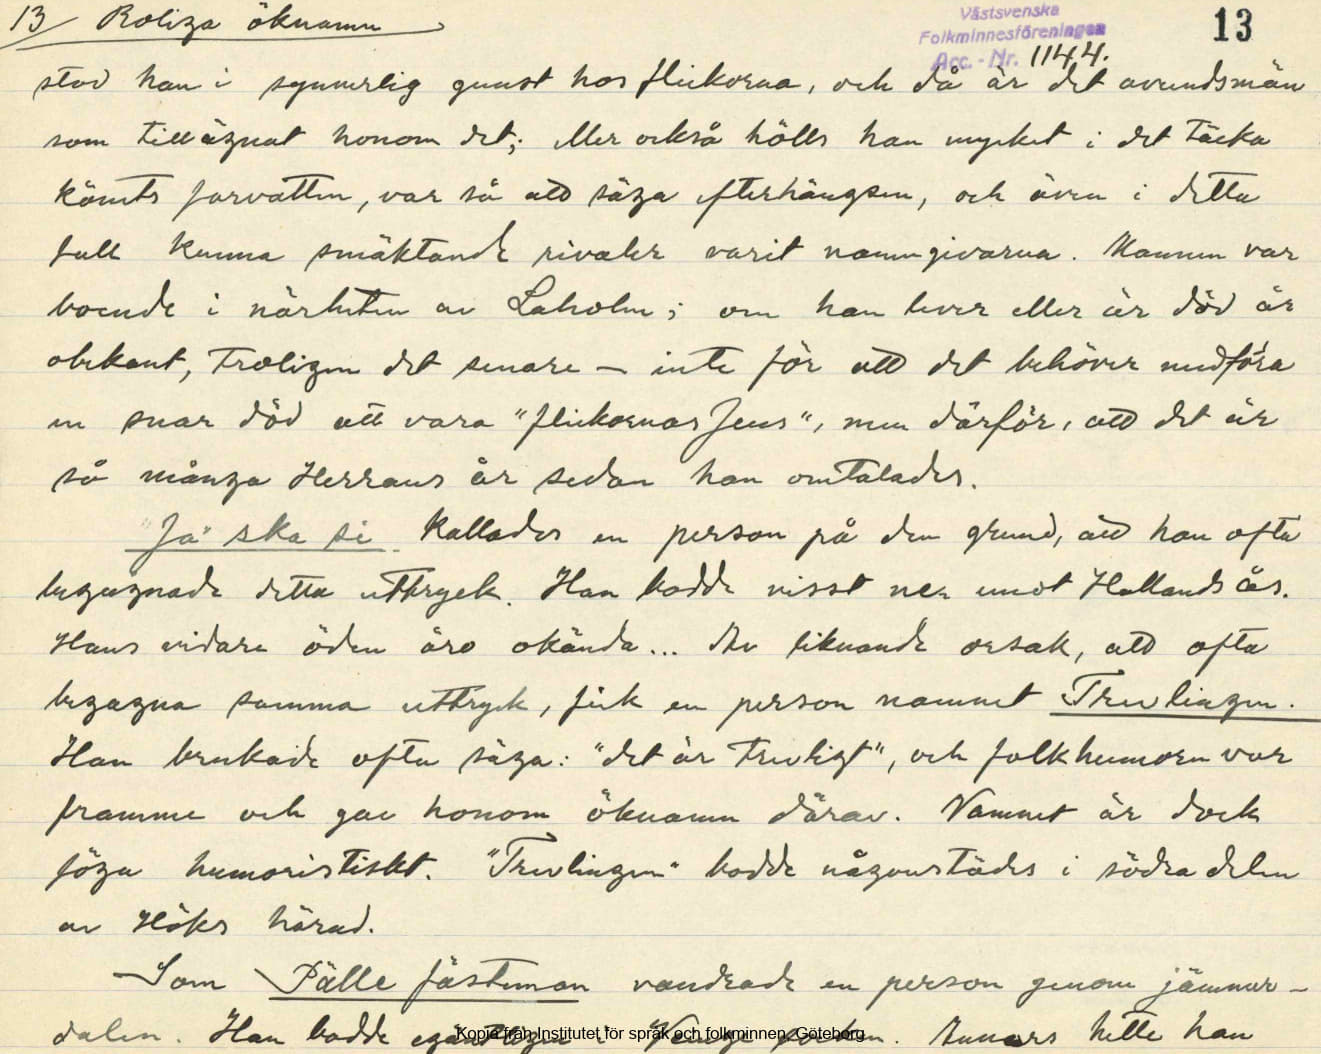 13 Roliga öknamn
Västsvenska
Folkminnesföreningen
Acc. - Nr. 1144.
13
stod han i synnerlig gunst hos flickorna, och då är det avundsmän
som tillägnat honom det; eller också hölls han mycket i det täcka
könets farvatten, var så att säga efterhängsen, och även i detta
fall kunna smäktande rivaler varit namngivarna. Mannen var
boende i närheten av Laholm; om han lever eller är död är
obekant, troligen det senare — inte för att det behöver medföra
en snar död att vara "flickornas Jens", men därför, att det är
så många Herrans år sedan han omtalades.
"Ja" ska si kallades en person på den grund, att han ofta
begagnade detta uttryck. Han bodde visst ner emot Hallands ås.
Hans vidare öden äro okända... Av liknande orsak, att ofta
begagna samma uttryck, fick en person namnet Trevlingen.
Han brukade ofta säga: "det är trevligt", och folkhumorn var
framme och gav honom öknamn därav. Namnet är dock
föga humoristiskt. "Trevlingen" bodde någonstädes i södra delen
av Höks härad.
Som Pälle fästeman vandrade en person genom jämmer-
dalen. Han bodde egentligen i Annars hette han
Kopia från Institutet för språk och folkminnen, Göteborg